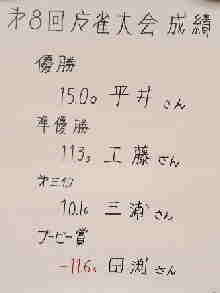 第8回 麻雀大会 成績
優勝
150.0 平井さん
準優勝
113.3 工藤さん
第三位
101.6 三浦さん
ブービー賞
-116. 田浦さん